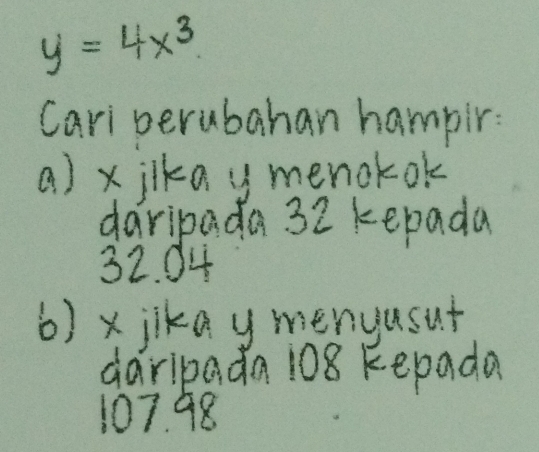 y = 4x³.
Cari perubahan hampir:
a) x jika y menokok
daripada 32 kepada
32.04
b) x jika y menyusut
daripada 108 kepada
107.98